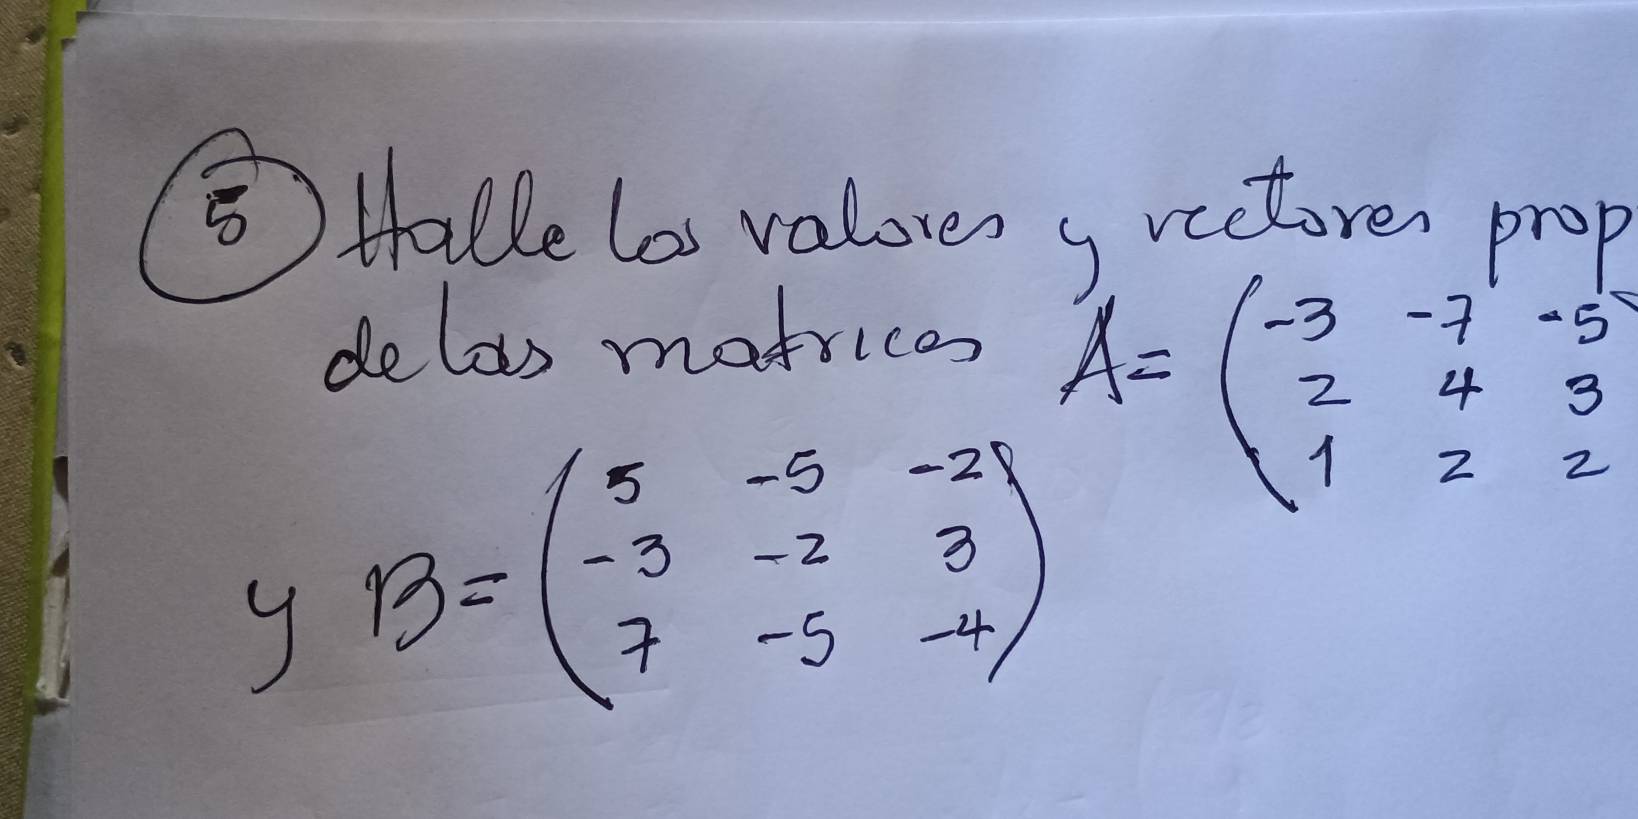 5 Halle los valores y vectores prop
de las matrices A= ( -3 -7 -5
2 4 3
1 2 2
y B= ( 5 -5 -2
-3 -2 3
7 -5 -4 )